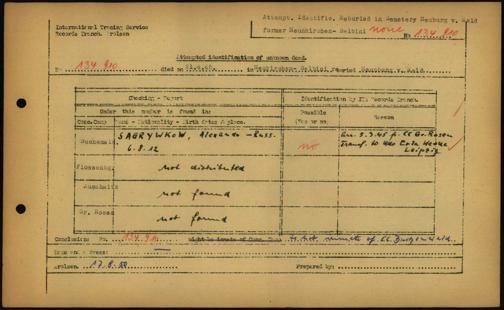 International Tracing Service
Records Branch. Arolsen
Attempt. Identific. Reburied in Cemetery Neuburg v. Wald
former Neunkirchen- Balbini none
No 134 910
Attempted identification of unknown dead.
No 134.910 died on in Neukirchen- Balbini reburied Neunburg v. Wald.
Checking - Report
Identification by ITS Records Branch.
Under this number is found in:
Possible
Conc.Camp Name - Nationality - Birth date & place. (Yes or no) Reason
Buchenwald SAGRYWKOW, Alexander - Russ. 6.8.12 no 5.3.45 Gr. Rosen
Transf. to Leipzig
Flossenbg. not distributed
Auschwitz not found
Gr. Rosen not found
Conclusion: No. 134.910 is not inmate of CC Buchenwald
Arolsen 17.8.50 Prepared by: